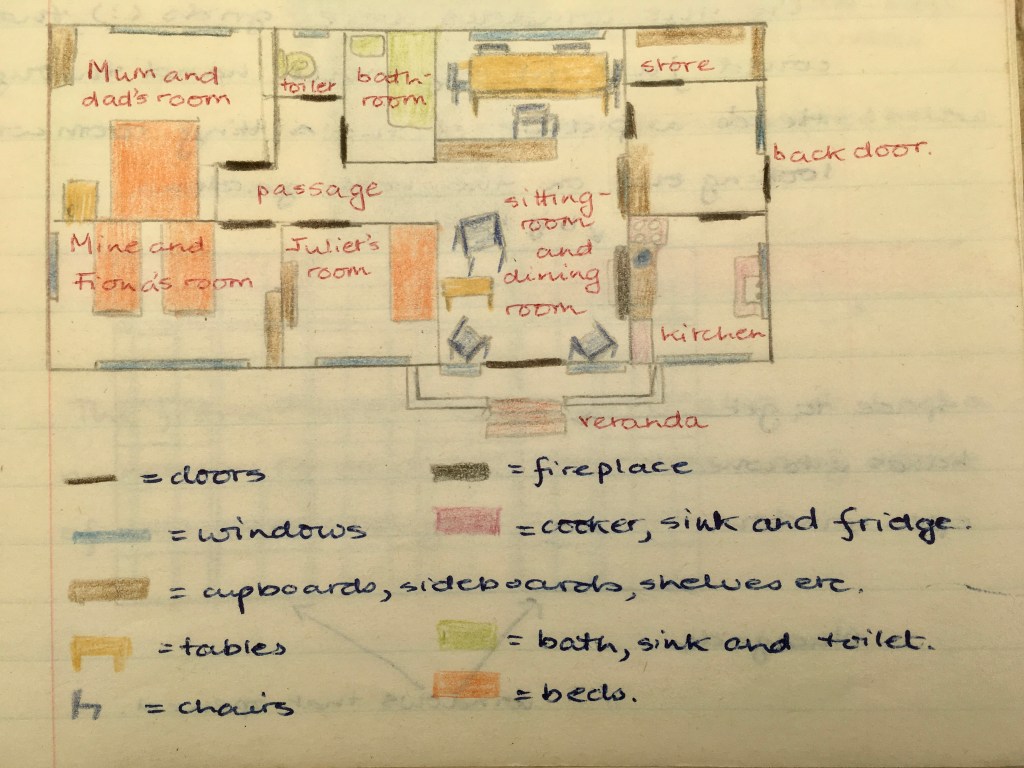 Mum and
dad's room
toilet
bath-
room
store
back door.
passage
sitting-
room
and
dining
room
Mine and
Fiona's room
Juliet's
room
kitchen
veranda
= doors
= fireplace
= windows
= cooker, sink and fridge.
= cupboards, sideboards, shelves etc.
= tables
= bath, sink and toilet.
= chairs
= beds.